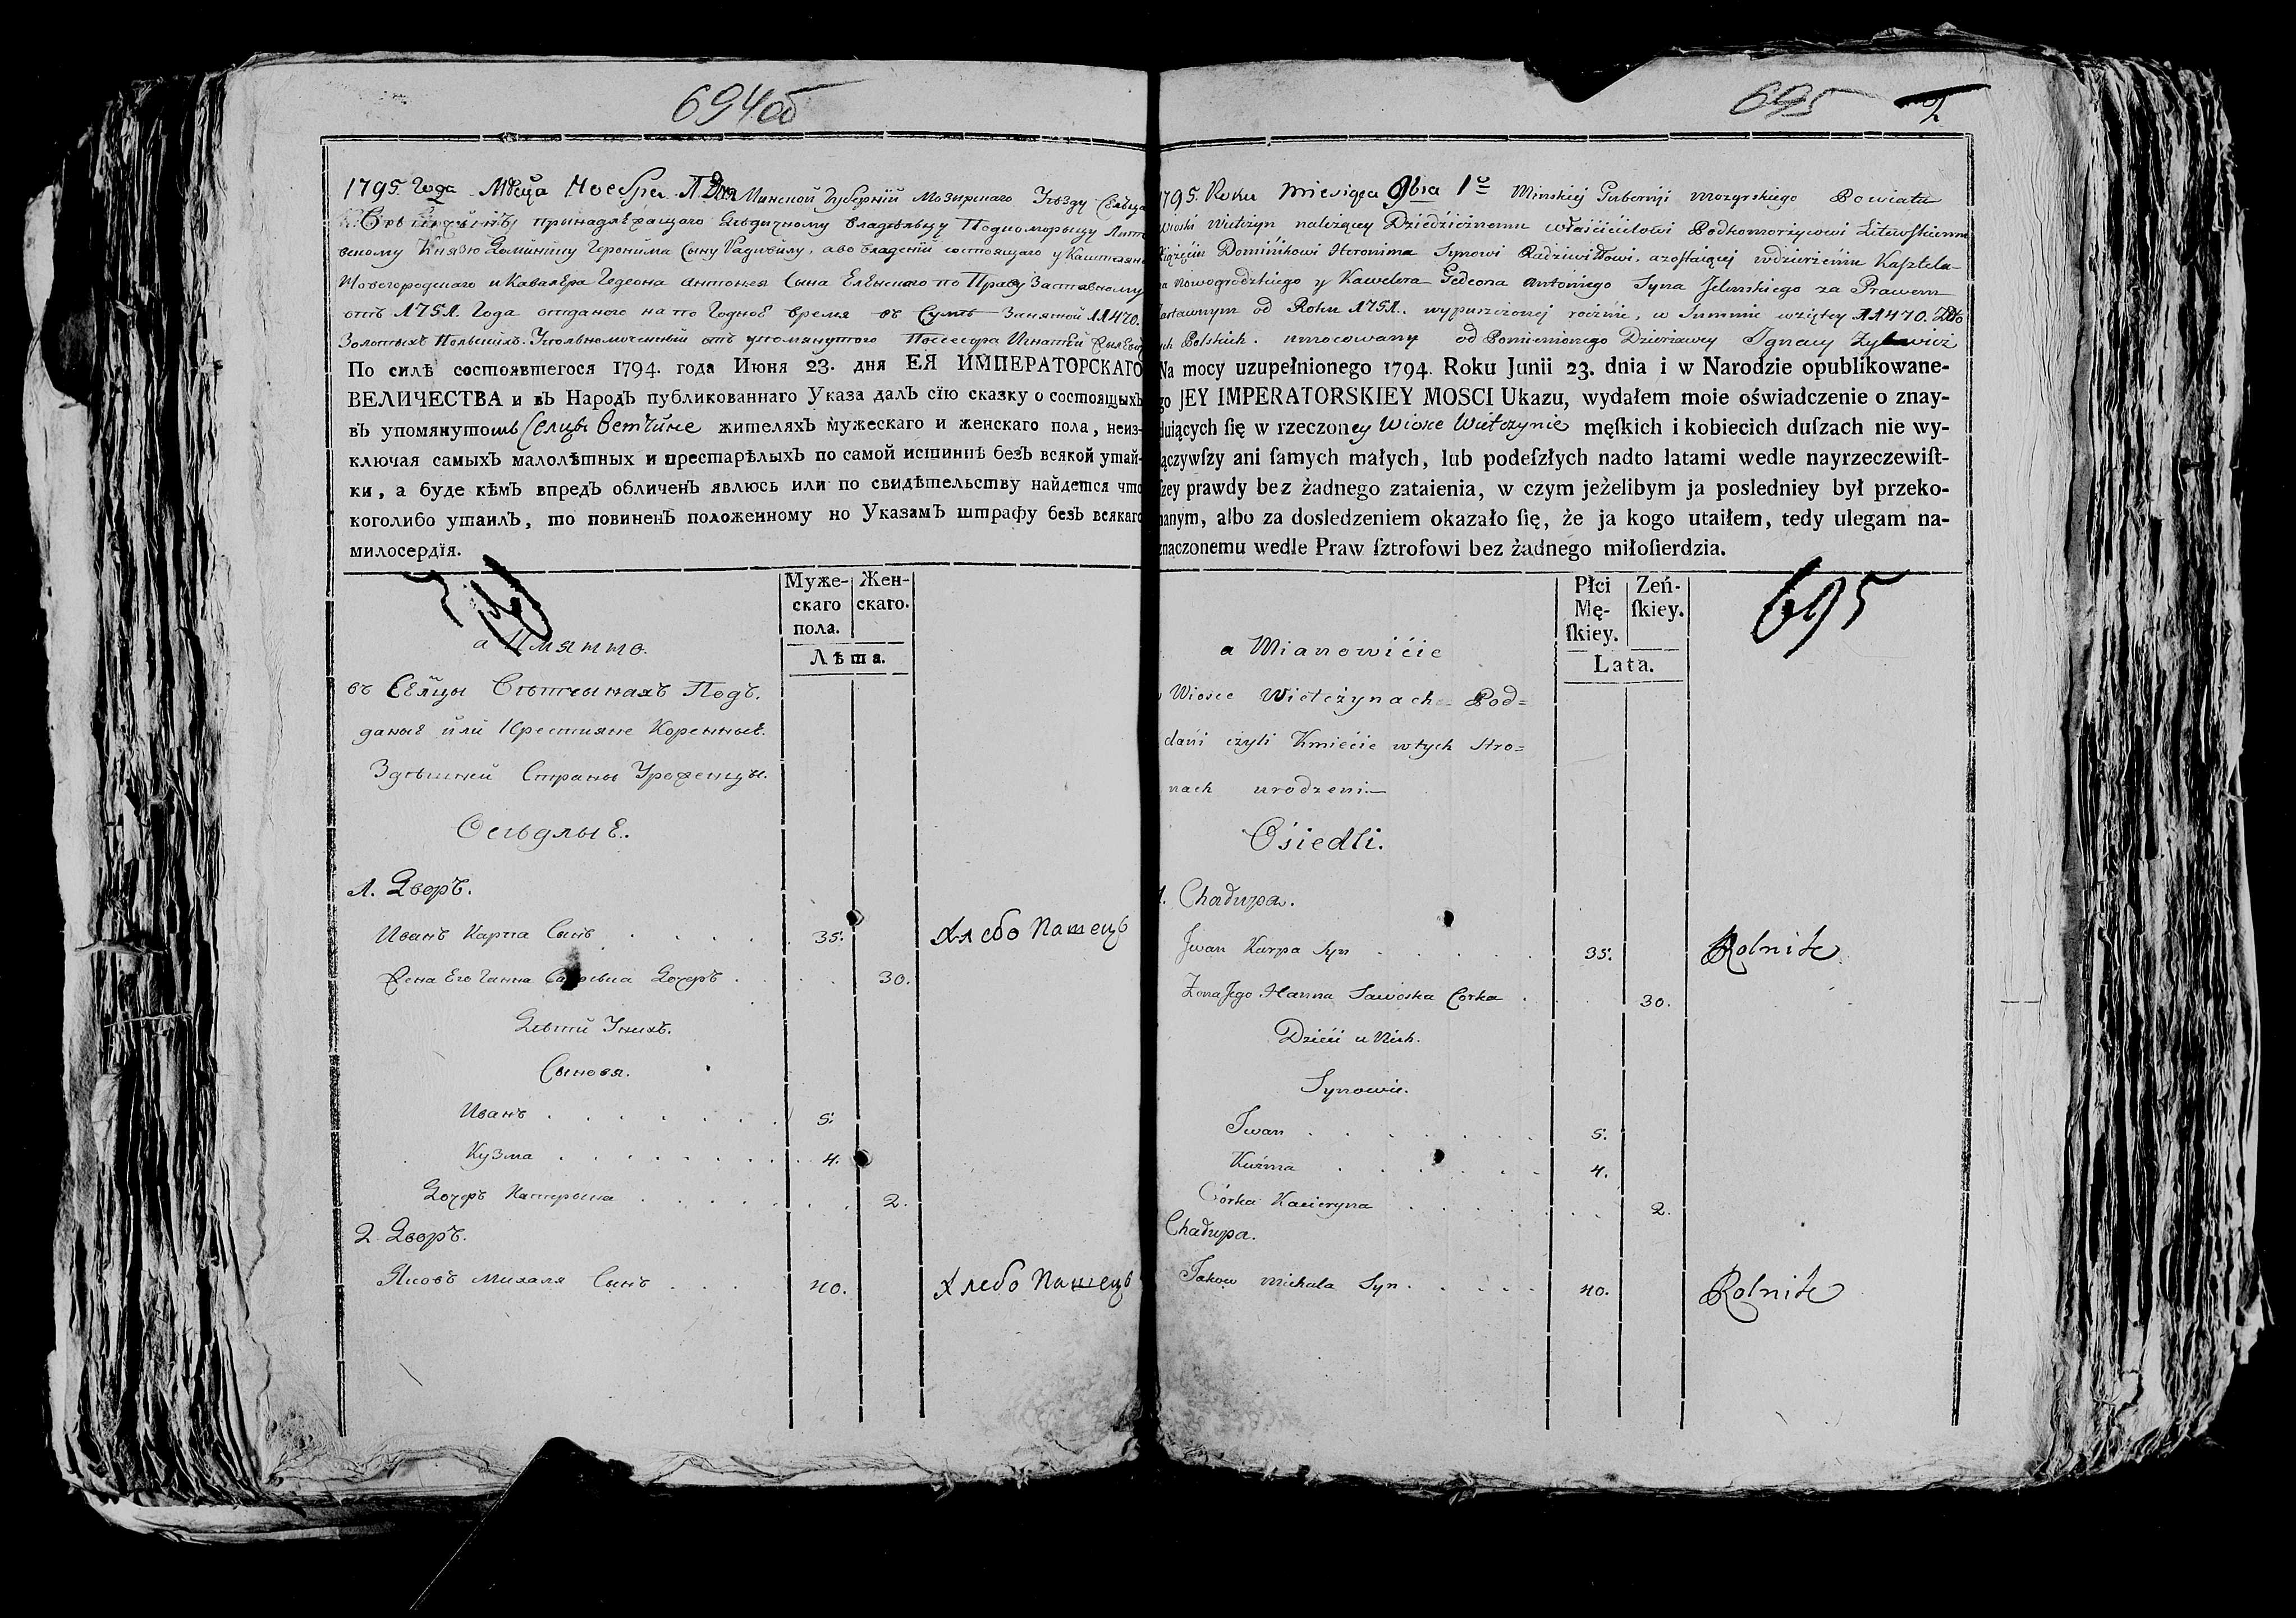 694об
1795. года Мѣсца Ноебра 1 Дня Минской Губернїй Мозирскаго Уѣзду Сельца
принадлѣжащаго Дѣдичному Владѣльцу Подкоморыцу Лит
вскому Князю Доминику Геронима Сыну Радивилу, а во владенїй состоящаго у Каштеляна
Новогородскаго и Кавалѣра Гедеона Антонья Сына Еленскаго по Праву Заставному
отъ 1751. Года отданое на то Годное время въ Сумѣ Занятой 11470.
Золотыхъ Польскихъ. Уполномоченный отъ упомянутого Посесора Игнатий
По силѣ состоявшегося 1794. года Июня 23. дня ЕЯ ИМПЕРАТОРСКАГО
ВЕЛИЧЕСТВА и въ Народъ публикованнаго Указа далъ сїю сказку о состоящыхъ
въ упомянутомъ Селцы Ветчине жителяхъ мужескаго и женскаго пола, неиз-
ключая самыхъ малолѣтныхъ и престарѣлыхъ по самой истиннѣ безъ всякой утай-
ки, а буде кѣмъ впредъ обличенъ явлюсь или по свидѣтельству найдется что
коголибо утаилъ, то повиненъ положенному по Указамъ штрафу безъ всякаго
милосердїя.
Муже-
скаго
пола.
Жен-
скаго.
Лѣта.
а Имянно.
въ Селцы Вѣтчынахъ Подъ.
даные или Крестияне Коренные.
Здѣшней Страны Уроженцы.
Осѣдлые.
1. Дворъ.
Иванъ Карпа Сынъ 35. Хлебо Пашець
Жена Его Ганна Дочеръ 30.
Дѣти Унихъ.
Сыновя.
Иванъ 5.
Кузма 4.
Дочеръ Катерына 2.
2 Дворъ.
Яковъ Михаля Сынъ 40. Хлебо Пашець
695
1795. Roku miesiąca 9bra 1º Minskiej Gubernji Mozyrskiego Powiatu
Wioski Wietczyn należącey Dziedzicznemu właścicielowi Podkomorzycowi Litewskiemu
Xiążęciu Dominikowi Heronima Synowi Radziwiłłowi, a zostaiącey w dzierżeniu Kasztela-
na Nowogrodzkiego y Kawalera Gedeona Antoniego Syna Jelenskiego za Prawem
Zastawnym od Roku 1751. wypuszczonej rocznie, w Summie wziętey 11470. Zło
tych Polskich. umocowany od Pomienionego Dzierżawcy Ignacy
Na mocy uzupełnionego 1794. Roku Junii 23. dnia i w Narodzie opublikowane-
go JEY IMPERATORSKIEY MOSCI Ukazu, wydałem moie oświadczenie o znay-
duiących ſię w rzeczoney Wiosce Wietczynie męſkich i kobiecich duſzach nie wy-
łączywſzy ani ſamych małych, lub podeſzłych nadto latami wedle nayrzeczewiſt-
ſzey prawdy bez żadnego zataienia, w czym jeżelibym ja posledniey był przeko-
nanym, albo za dosledzeniem okazało ſię, że ja kogo utaiłem, tedy ulegam na-
znaczonemu wedle Praw ſztrofowi bez żadnego miłoſierdzia.
Płci
Mę-
ſkiey.
Zeń-
ſkiey.
Lata.
695
a Mianowićie
Wiosce Wietczynach Pod=
dani czyli Kmiećie w tych Stro=
nach urodzeni.
Ośiedli.
1. Chałupa.
Jwan Karpa Syn 35. Rolnik
Żona Jego Hanna Sawoska Corka 30.
Dzieci u Nich.
Synowie.
Jwan 5.
Kuźma 4.
Córka Kacieryna 2.
Chałupa.
Jakow Michala Syn 40. Rolnik